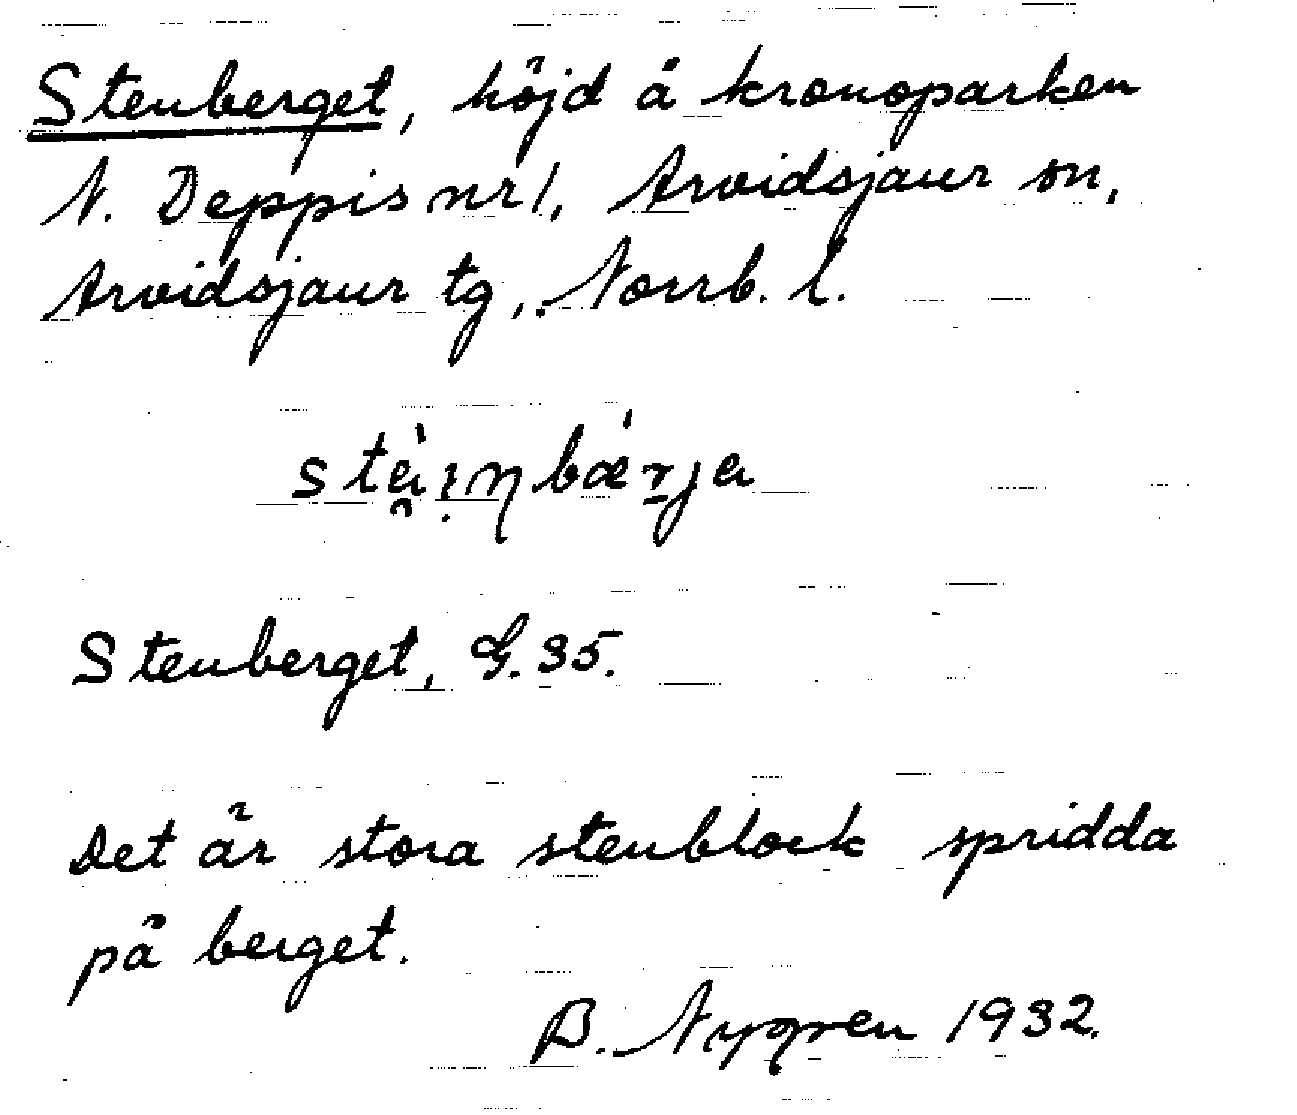 Stenberget, höjd å kronoparken
N. Deppis nr 1, Arvidsjaur sn,
Arvidsjaur tg, Norrb. l.
Stenberget, G. 35.
Det är stora stenblock spridda
på berget.
B. Nygren 1932.